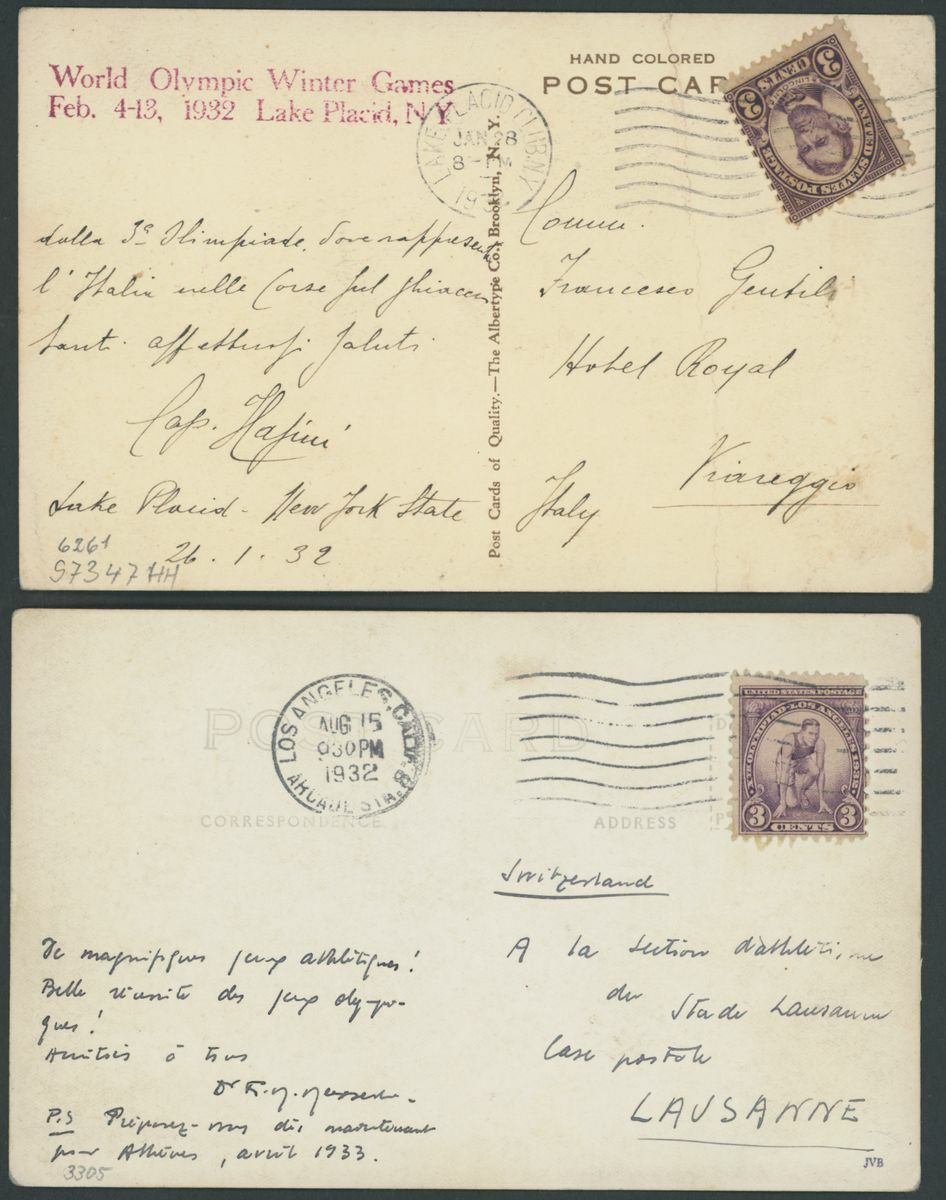 World Olympic Winter Games
Feb. 4-13, 1932 Lake Placid, N.Y.
HAND COLORED
POST CAR
3 CENTS 3
LINCOLN
UNITED STATES POSTAGE
LAKE PLACID CLUB N.Y.
JAN 28
8 - PM
193
dalla 3ª Olimpiade, dove rappresento
l'Italia nelle Corse sul ghiaccio
tanti affettuosi saluti
Cap.
Lake Placid - New York State
26 . 1 . 32
6261
97347 HH
Post Cards of Quality.—The Albertype Co., Brooklyn, N. Y.
Comm.
Francesco Gentili
Hotel Royal
Viareggio
Italy
POST CARD
LOS ANGELES, CALIF.
AUG 15
930 PM
1932
ARCADE STA.
8
UNITED STATES POSTAGE
X•TH OLYMPIAD•LOS ANGELES 1932•
3 CENTS 3
CORRESPONDENCE
ADDRESS
Switzerland
De magnifiques jeux athlétiques!
Belle réussite des jeux olympi-
ques!
Amitiés à tous
Dr F. M. Messerli.
P.S Préparez-vous dès maintenant
pour Athènes, avril 1933.
3305
A la section d'athlétisme
du Stade Lausanne
Case postale
LAUSANNE
JVB